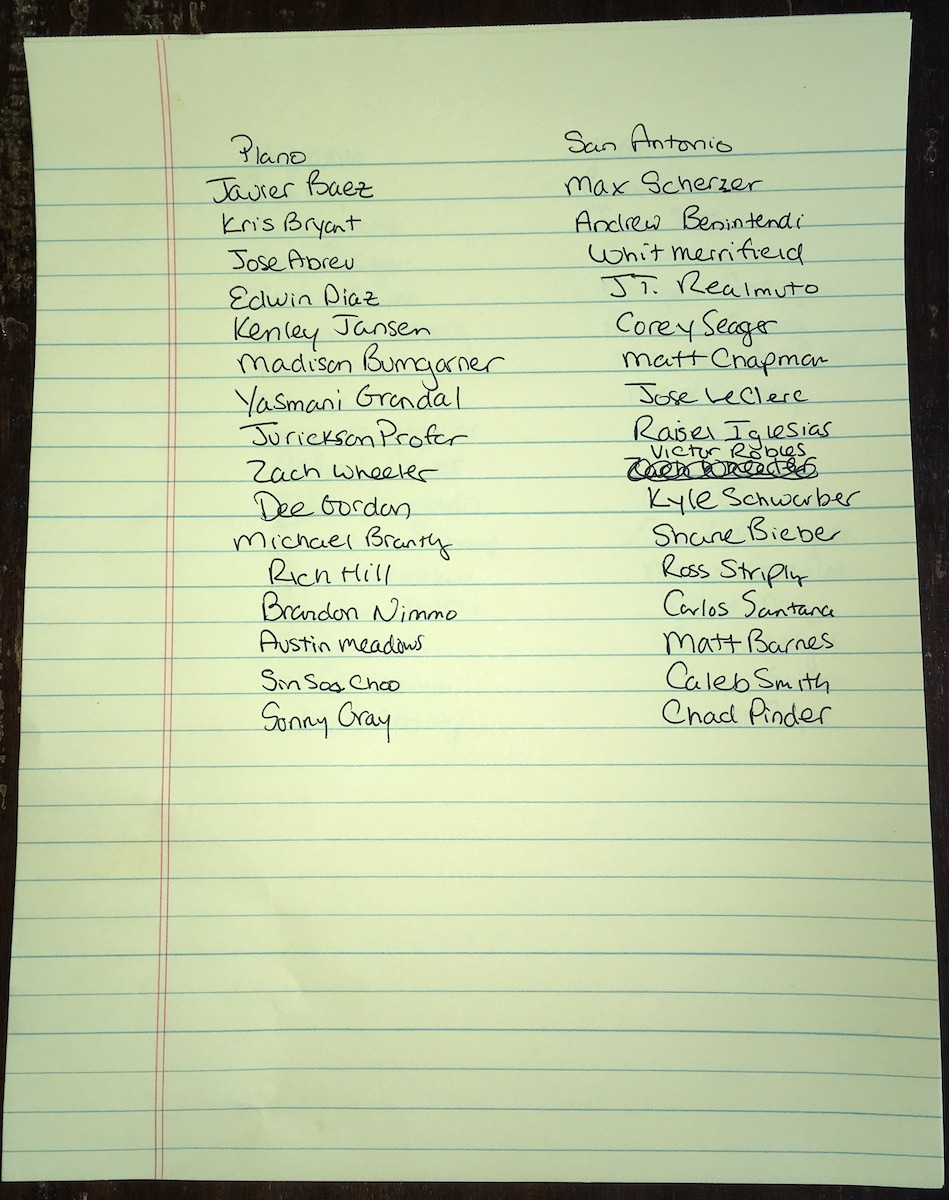 Plano
Javier Baez
Kris Bryant
Jose Abreu
Edwin Diaz
Kenley Jansen
Madison Bumgarner
Yasmani Grandal
Jurickson Profar
Zach Wheeler
Dee Gordon
Michael Brantly
Rich Hill
Brandon Nimmo
Austin meadows
Sin Soo Choo
Sonny Gray
San Antonio
Max Scherzer
Andrew Benintendi
Whit Merrifield
JT. Realmuto
Corey Seager
Matt Chapman
Jose LeClerc
Raisel Iglesias
Victor Robles
Kyle Schwarber
Shane Bieber
Ross Striply
Carlos Santana
Matt Barnes
Caleb Smith
Chad Pinder